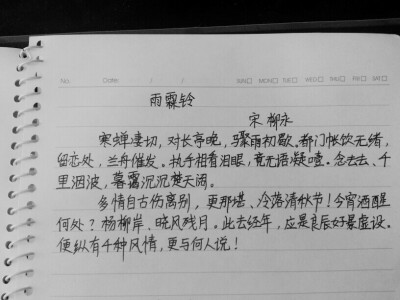 No:    Date:    /    /    SUN□ MON□ TUE□ WED□ THU□ FRI□ SAT□
雨霖铃
宋 柳永
寒蝉凄切，对长亭晚，骤雨初歇。都门怅饮无绪，
留恋处，兰舟催发。执手相看泪眼，竟无语凝噎。念去去、千
里烟波，暮霭沉沉楚天阔。
多情自古伤离别，更那堪、冷落清秋节！今宵酒醒
何处？杨柳岸、晓风残月。此去经年，应是良辰好景虚设。
便纵有千种风情，更与何人说！